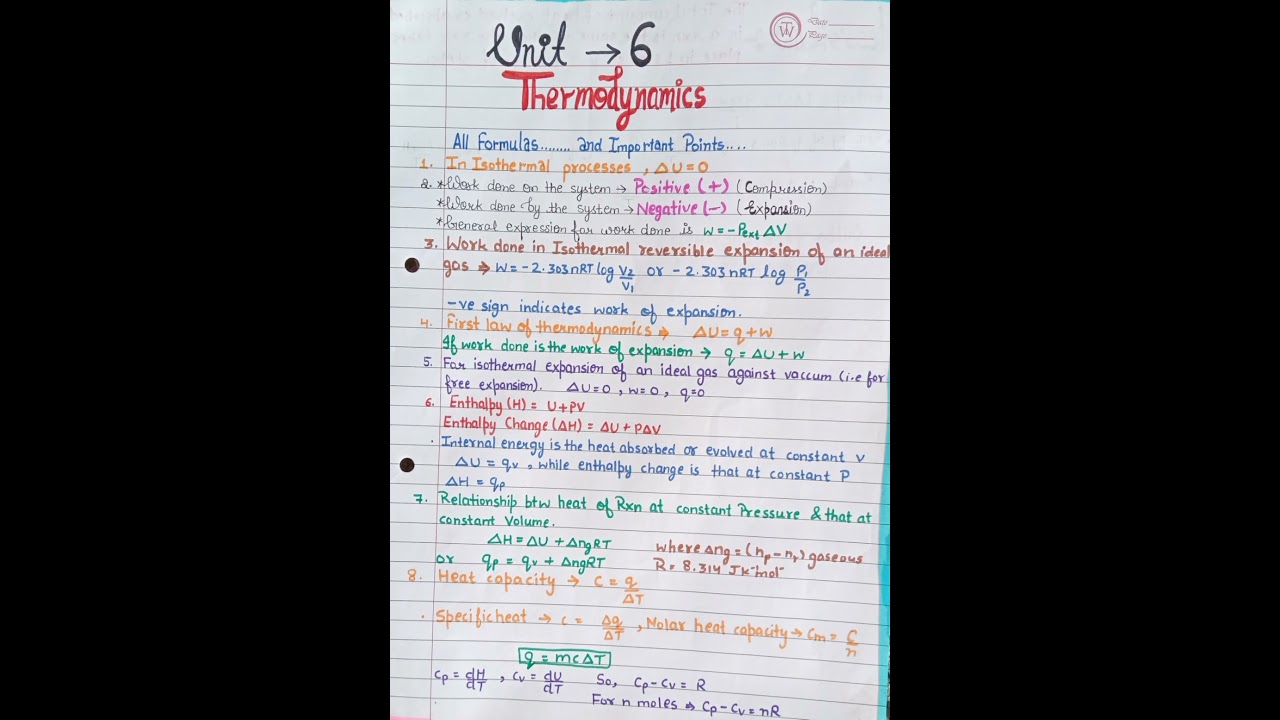 Date
Page
Unit → 6
Thermodynamics
All Formulas........ and Important Points....
1. In Isothermal processes, ΔU=0
2. *Work done on the system → Positive (+) (Compression)
*Work done by the system → Negative (-) (Expansion)
*General expression for work done is W = -Pext ΔV
3. Work done in Isothermal reversible expansion of an ideal
gas ⇒ W = -2.303nRT log V2/V1 or -2.303 nRT log P1/P2
-ve sign indicates work of expansion.
4. First law of thermodynamics ⇒ ΔU = q+W
If work done is the work of expansion → q = ΔU + W
5. For isothermal expansion of an ideal gas against vaccum (i.e for
free expansion). ΔU=0, W=0, q=0
6. Enthalpy (H) = U+PV
Enthalpy Change (ΔH) = ΔU + PΔV
. Internal energy is the heat absorbed or evolved at constant V
ΔU = qv, while enthalpy change is that at constant P
ΔH = qp
7. Relationship btw heat of Rxn at constant Pressure & that at
constant Volume.
ΔH = ΔU + ΔngRT where Δng = (np - nr) gaseous
or qp = qv + ΔngRT R = 8.314 JK⁻mol⁻
8. Heat capacity → C = q/ΔT
. Specific heat → c = Δq/ΔT, Molar heat capacity → Cm = C/n
q = mcΔT
Cp = dH/dT, Cv = dU/dT So, Cp - Cv = R
For n moles ⇒ Cp - Cv = nR